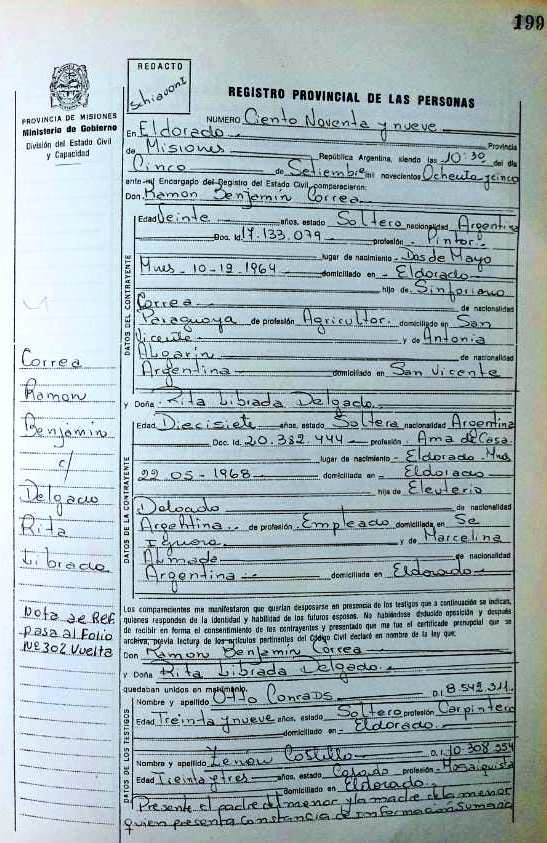 199
REDACTO
Schiavoni
PROVINCIA DE MISIONES
Ministerio de Gobierno
División del Estado Civil
y Capacidad
REGISTRO PROVINCIAL DE LAS PERSONAS
NUMERO Ciento Noventa y nueve
En Eldorado Provincia
de Misiones República Argentina, siendo las 10:30 del día
Cinco de Setiembre mil novecientos Ochenta y cinco
ante mí Encargado del Registro del Estado Civil, comparecieron:
Don Ramon Benjamin Correa
DATOS DEL CONTRAYENTE
Edad Veinte años, estado Soltero nacionalidad Argentina
Doc. Id. 17.133.079 profesión - Pintor -
lugar de nacimiento - Dos de Mayo
Mnes - 10-12-1964 - domiciliado en - Eldorado -
hijo de Sinforiano
Correa de nacionalidad
Paraguaya de profesión Agricultor domiciliado en San
Vicente y de Antonia
Algarin de nacionalidad
Argentina domiciliado en San Vicente
y Doña Rita Librada Delgado
DATOS DE LA CONTRAYENTE
Edad Diecisiete años, estado Soltera nacionalidad Argentina
Doc. Id. 20.382.444 - profesión - Ama de Casa
lugar de nacimiento - Eldorado - Mnes
22-05-1968 - domiciliada en - Eldorado
hija de Eleuterio
Delgado de nacionalidad
Argentina de profesión Empleado domiciliado en Se
Ignora y de Marcelina
Almada de nacionalidad
Argentina domiciliada en Eldorado
Los comparecientes me manifestaron que querían desposarse en presencia de los testigos que a continuación se indican,
quienes responden de la identidad y habilidad de los futuros esposos. No habiéndose deducido oposición y después
de recibir en forma el consentimiento de los contrayentes y presentado que me fue el certificado prenupcial que se
archiva, previa lectura de los artículos pertinentes del Código Civil declaré en nombre de la ley que:
Don Ramon Benjamin Correa
y Doña Rita Librada Delgado
quedaban unidos en matrimonio.
DATOS DE LOS TESTIGOS
Nombre y apellido Otto Conrads D.I. 8.542.311
Edad Treinta y nueve años, estado Soltero profesión Carpintero
domiciliado en Eldorado
Nombre y apellido Zenon Costillo D.I. 10.308.354
Edad Treinta y tres años, estado Casado profesión Mosaiquista
domiciliado en Eldorado
Presente el padre del menor y la madre de la menor
quien presenta Constancia de Información Sumaria
Correa
Ramon
Benjamin
c/
Delgado
Rita
Librada
Nota de Ref.
pasa al Folio
Nº 302 Vuelta